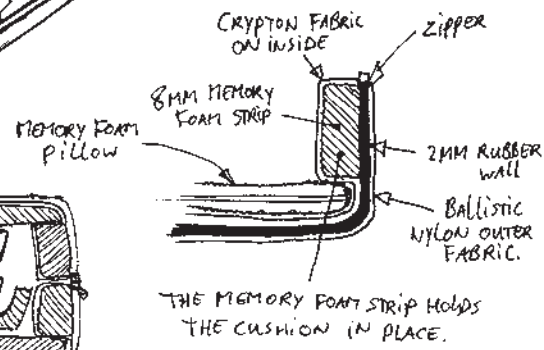 CRYPTON FABRIC
ON INSIDE
ZIPPER
8MM MEMORY
FOAM STRIP
MEMORY FOAM
PILLOW
2MM RUBBER
WALL
BALLISTIC
NYLON OUTER
FABRIC.
THE MEMORY FOAM STRIP HOLDS
THE CUSHION IN PLACE.